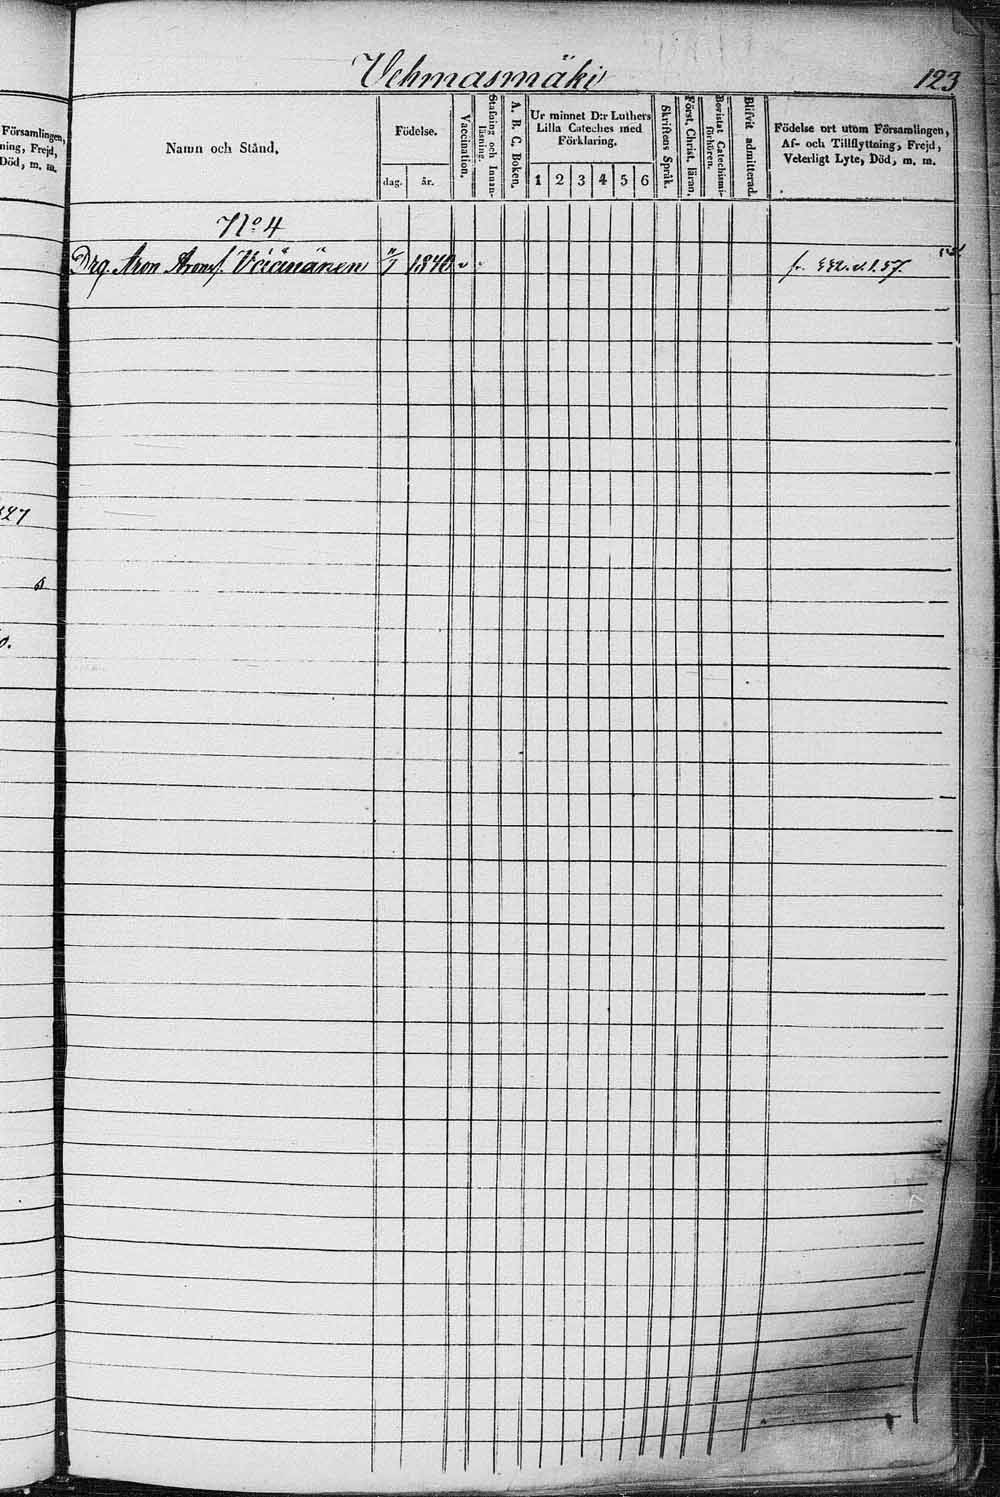 Församlingen,
ning, Frejd,
Död, m. m.
Vehmasmäki
123
Namn och Stånd.
Födelse.
dag.
år.
Vaccination.
Stafning och Innan-
läsning.
A. B. C. Boken.
Ur minnet D:r Luthers
Lilla Cateches med
Förklaring.
1 2 3 4 5 6
Skriftens Språk.
Först. Christ. läran.
Bevistat Catechismi-
förhören.
Blifvit admitterad.
Födelse ort utom Församlingen,
Af- och Tillflyttning, Frejd,
Veterligt Lyte, Död, m. m.
No 4
Drg. Aron Aronsf. Väänänen 1840 v